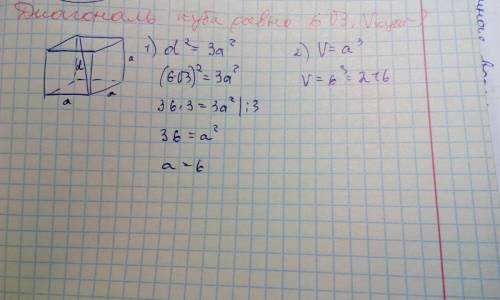 Диагональ куба равно 6√3. Vкуба-?
1) d² = 3a²
(6√3)² = 3a²
36·3 = 3a² | :3
36 = a²
a = 6
2) V = a³
V = 6³ = 216
a
d
a
a